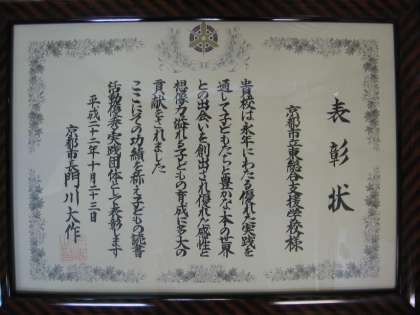 表彰状
京都市立東総合支援学校様
貴校は永年にわたる優れた実践を
通して子どもたちと豊かな本の世界
との出会いを創出され優れた感性と
想像力溢れる子どもの育成に多大の
貢献をされました
ここにその功績を称え子どもの読書
活動優秀実践団体として表彰します
平成二十二年十月二十三日
京都市長門川大作